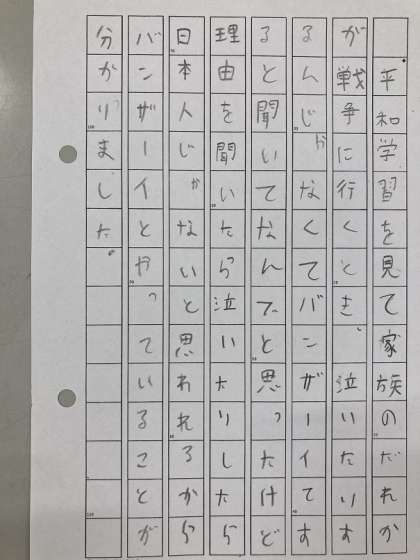 平和学習を見て家族のだれか
が戦争に行くとき、泣いたりす
るんじゃなくてバンザーイてす
ると聞いてなんでと思ったけど
理由を聞いたら泣いたりしたら
日本人じゃないと思われるから
バンザーイとやっていることが
分かりました。